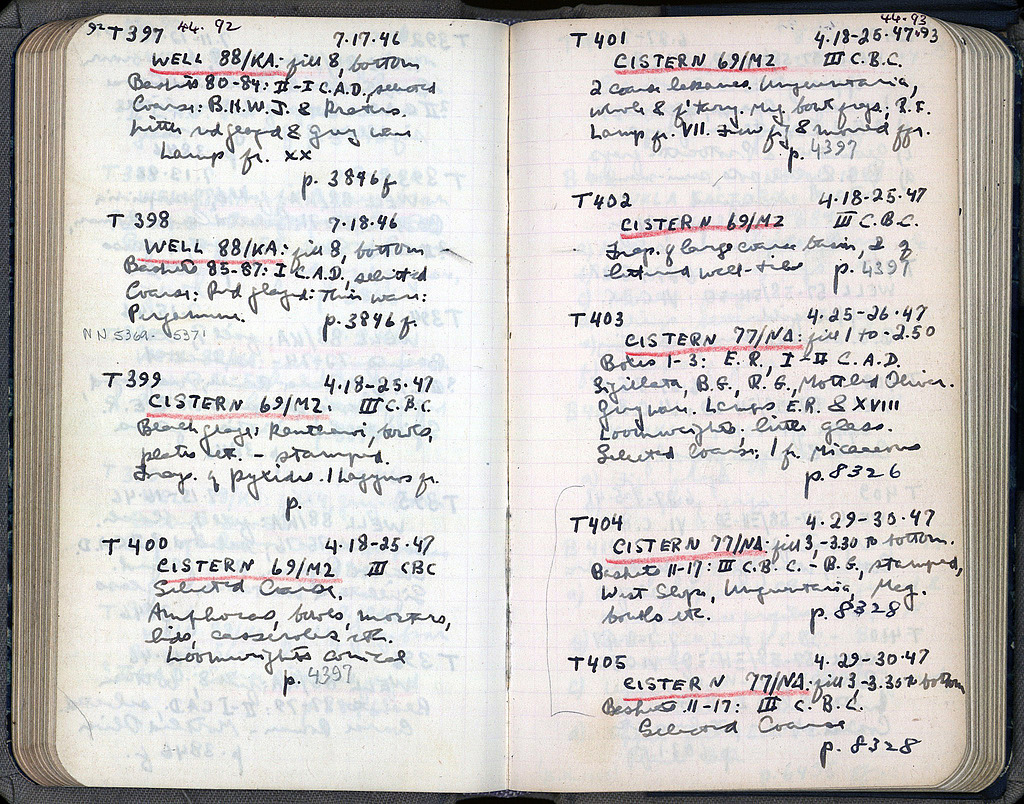 92 44.92
T 397 7.17.46
WELL 88/KA: fill 8, bottom
Baskets 80-84: II-I C.A.D. selected
Coarse: B.H.W.J. & Plates.
Little red glazed & grey ware
Lamp fr. XX
p. 3896 f
T 398 7.18.46
WELL 88/KA: fill 8, bottom
Baskets 85-87: I C.A.D., selected
Coarse: Red glazed: Thin ware:
Pergamene. p. 3896 f.
NN 5369 - 5371
T 399 4.18-25.47
CISTERN 69/M2. III C.B.C
Black glaze: Kantharoi, bowls,
plates etc. - stamped.
Frags. of pyxides. 1 Lagynos fr.
p.
T 400 4.18-25.47
CISTERN 69/M2 III CBC
Selected Coarse.
Amphoras, bowls, mortars,
lids, casseroles etc.
Loomweights conical
p. 4397
44.93
T 401 4.18-25.47.93
CISTERN 69/M2 III C.B.C.
2 coarse lekanes. Unguentaria,
whole & f'tary. Meg. bowl frags,
Lamp fr. VII. Few fig & mould ffr.
p. 4397
T 402 4.18-25.47
CISTERN 69/M2 III C.B.C.
Frag. of large coarse basin, & of
lettered well-tiles p. 4397
T 403 4.25-26.47
CISTERN 77/NA: fill 1 to -2.50
Boxes 1-3: E.R., I-II C.A.D.
Sigillata, B.G., R.G., Mottled Oliver.
Grey ware. Lamps E.R. & XVIII
Loomweights. little glass.
Selected Coarse; 1 fr. Micaceous
p. 8326
T 404 4.29-30.47
CISTERN 77/NA: fill 3, -3.30 to bottom.
Baskets 11-17: III C.B.C. - B.G., stamped,
West Slope, Unguentaria, Meg.
bowls etc. p. 8328
T 405 4.29-30.47
CISTERN 77/NA: fill 3, -3.30 to bottom
Baskets 11-17: III C.B.C.
Selected Coarse
p. 8328